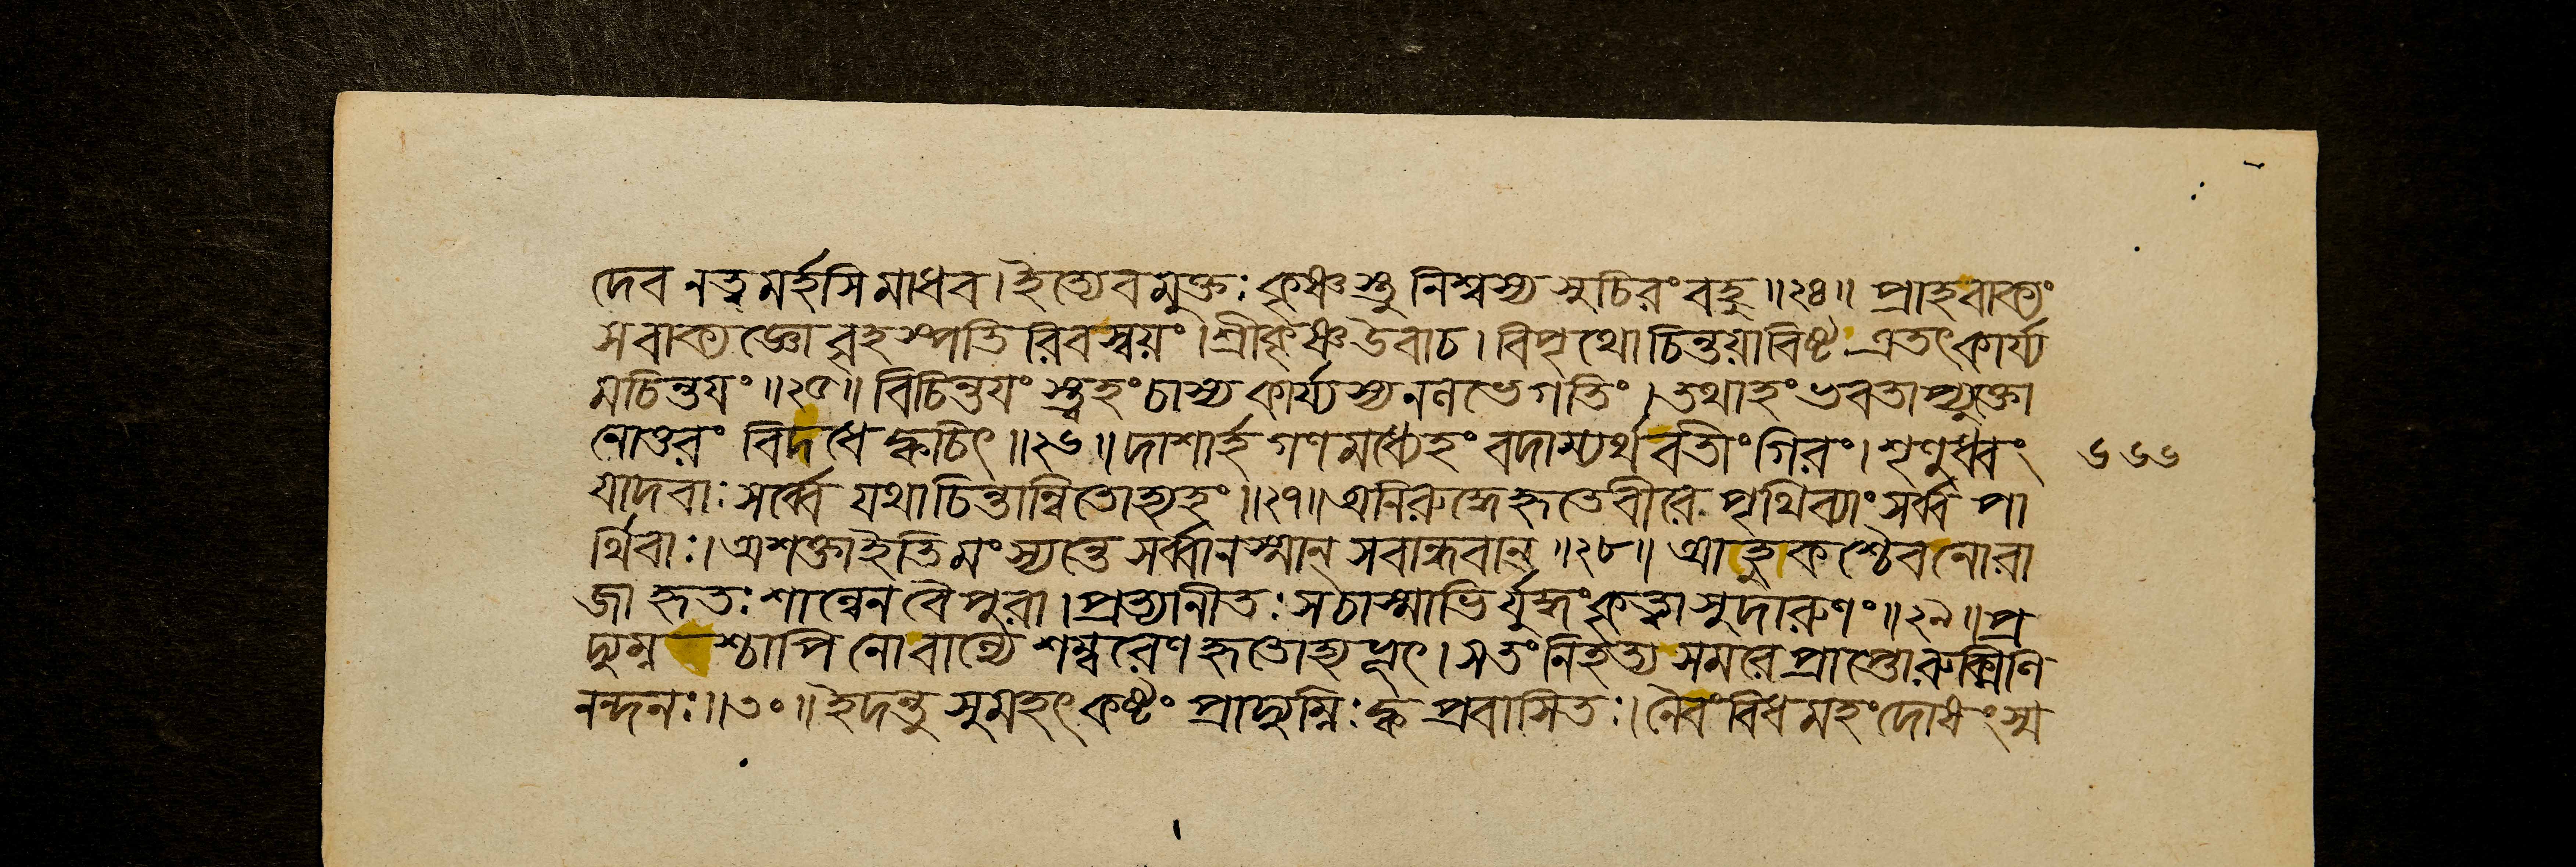 দেব নতু মর্হসি মাধব। ইত্যেব মুক্তঃ কৃষ্ণ স্তু নিশ্বস্য সুচিরং বহু॥২৪॥ প্রাহ বাক্যং
স বাক্য জ্ঞো বৃহস্পতি রিব স্বয়ং। শ্রীকৃষ্ণ উবাচ। বিপৃথো চিন্তয়া বিষ্ট এতৎ কার্য্য
মচিন্তয়ং॥২৫॥ বিচিন্তয়ং স্ত্বহং চাস্য কার্য্যস্য ন লভে গতিং। তথাহং ভবতাপ্যুক্তো
নোত্তরং বিদধে ক্বচিৎ॥২৬॥ দাশার্হ গণ মধ্যেহং বদাম্যর্থ বতীং গিরং। শৃণুধ্বং ৬৬৬
যাদবাঃ সর্ব্বে যথা চিন্তান্বিতোহ্যহং॥২৭॥ অনিরুদ্ধে হৃতে বীরে পৃথিব্যাং সর্ব্ব পা
র্থিবাঃ। অশক্তা ইতি মংস্যন্তে সর্ব্বানস্মান্ সবান্ধবান্॥২৮॥ আহুক শ্চৈব নো রা
জা হৃতঃ শাল্বেন বৈ পুরা। প্রত্যানীতঃ সচাস্মাভি র্যুদ্ধং কৃত্বা সুদারুণং॥২৯॥ প্র
দ্যুম্ন শ্চাপি নো বাল্যে শম্বরেণ হৃতোহ্যভূৎ। স তং নিহত্য সমরে প্রাপ্তো রুক্মিণি
নন্দনঃ॥৩০॥ ইদন্তু সুমহৎ কষ্টং প্রাদ্যুম্নিঃ ক্ব প্রবাসিতঃ। নৈবং বিধ মহং দোষং স্ম